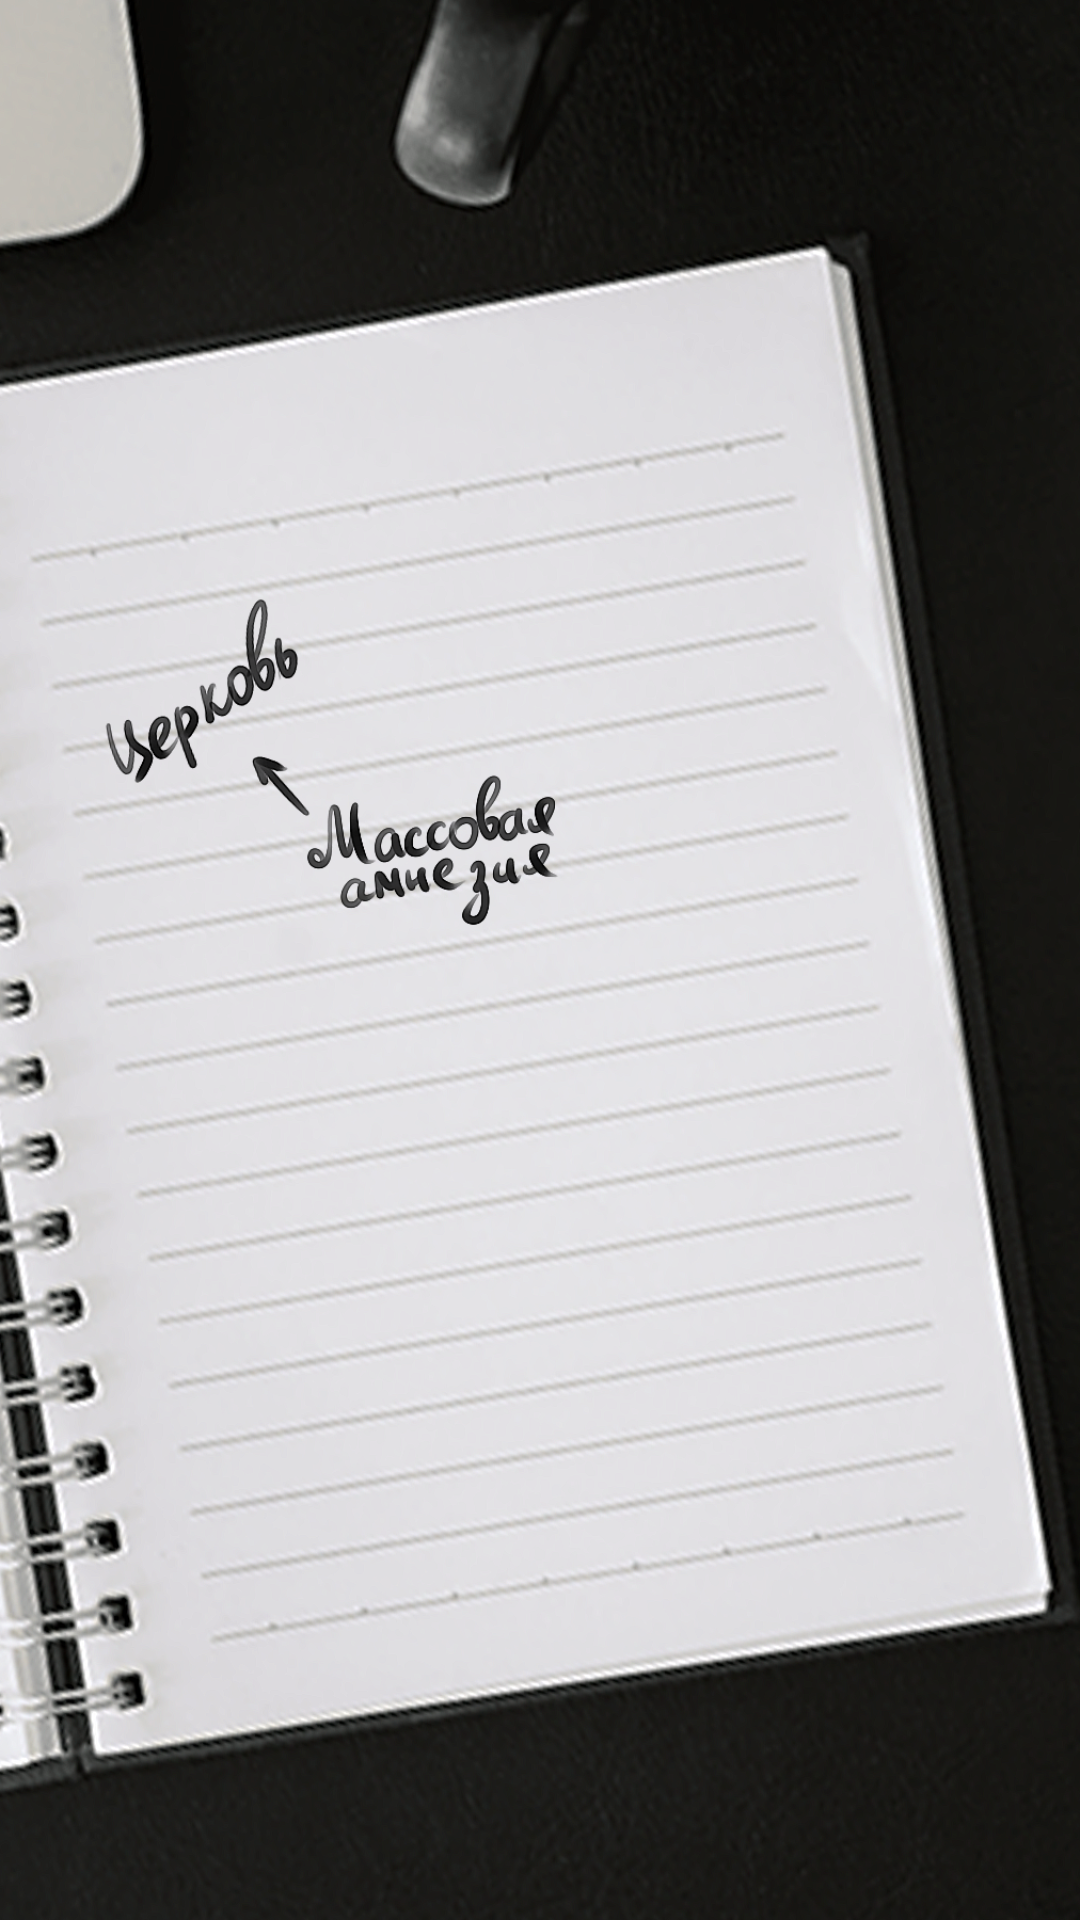 Церковь
Массовая
амнезия